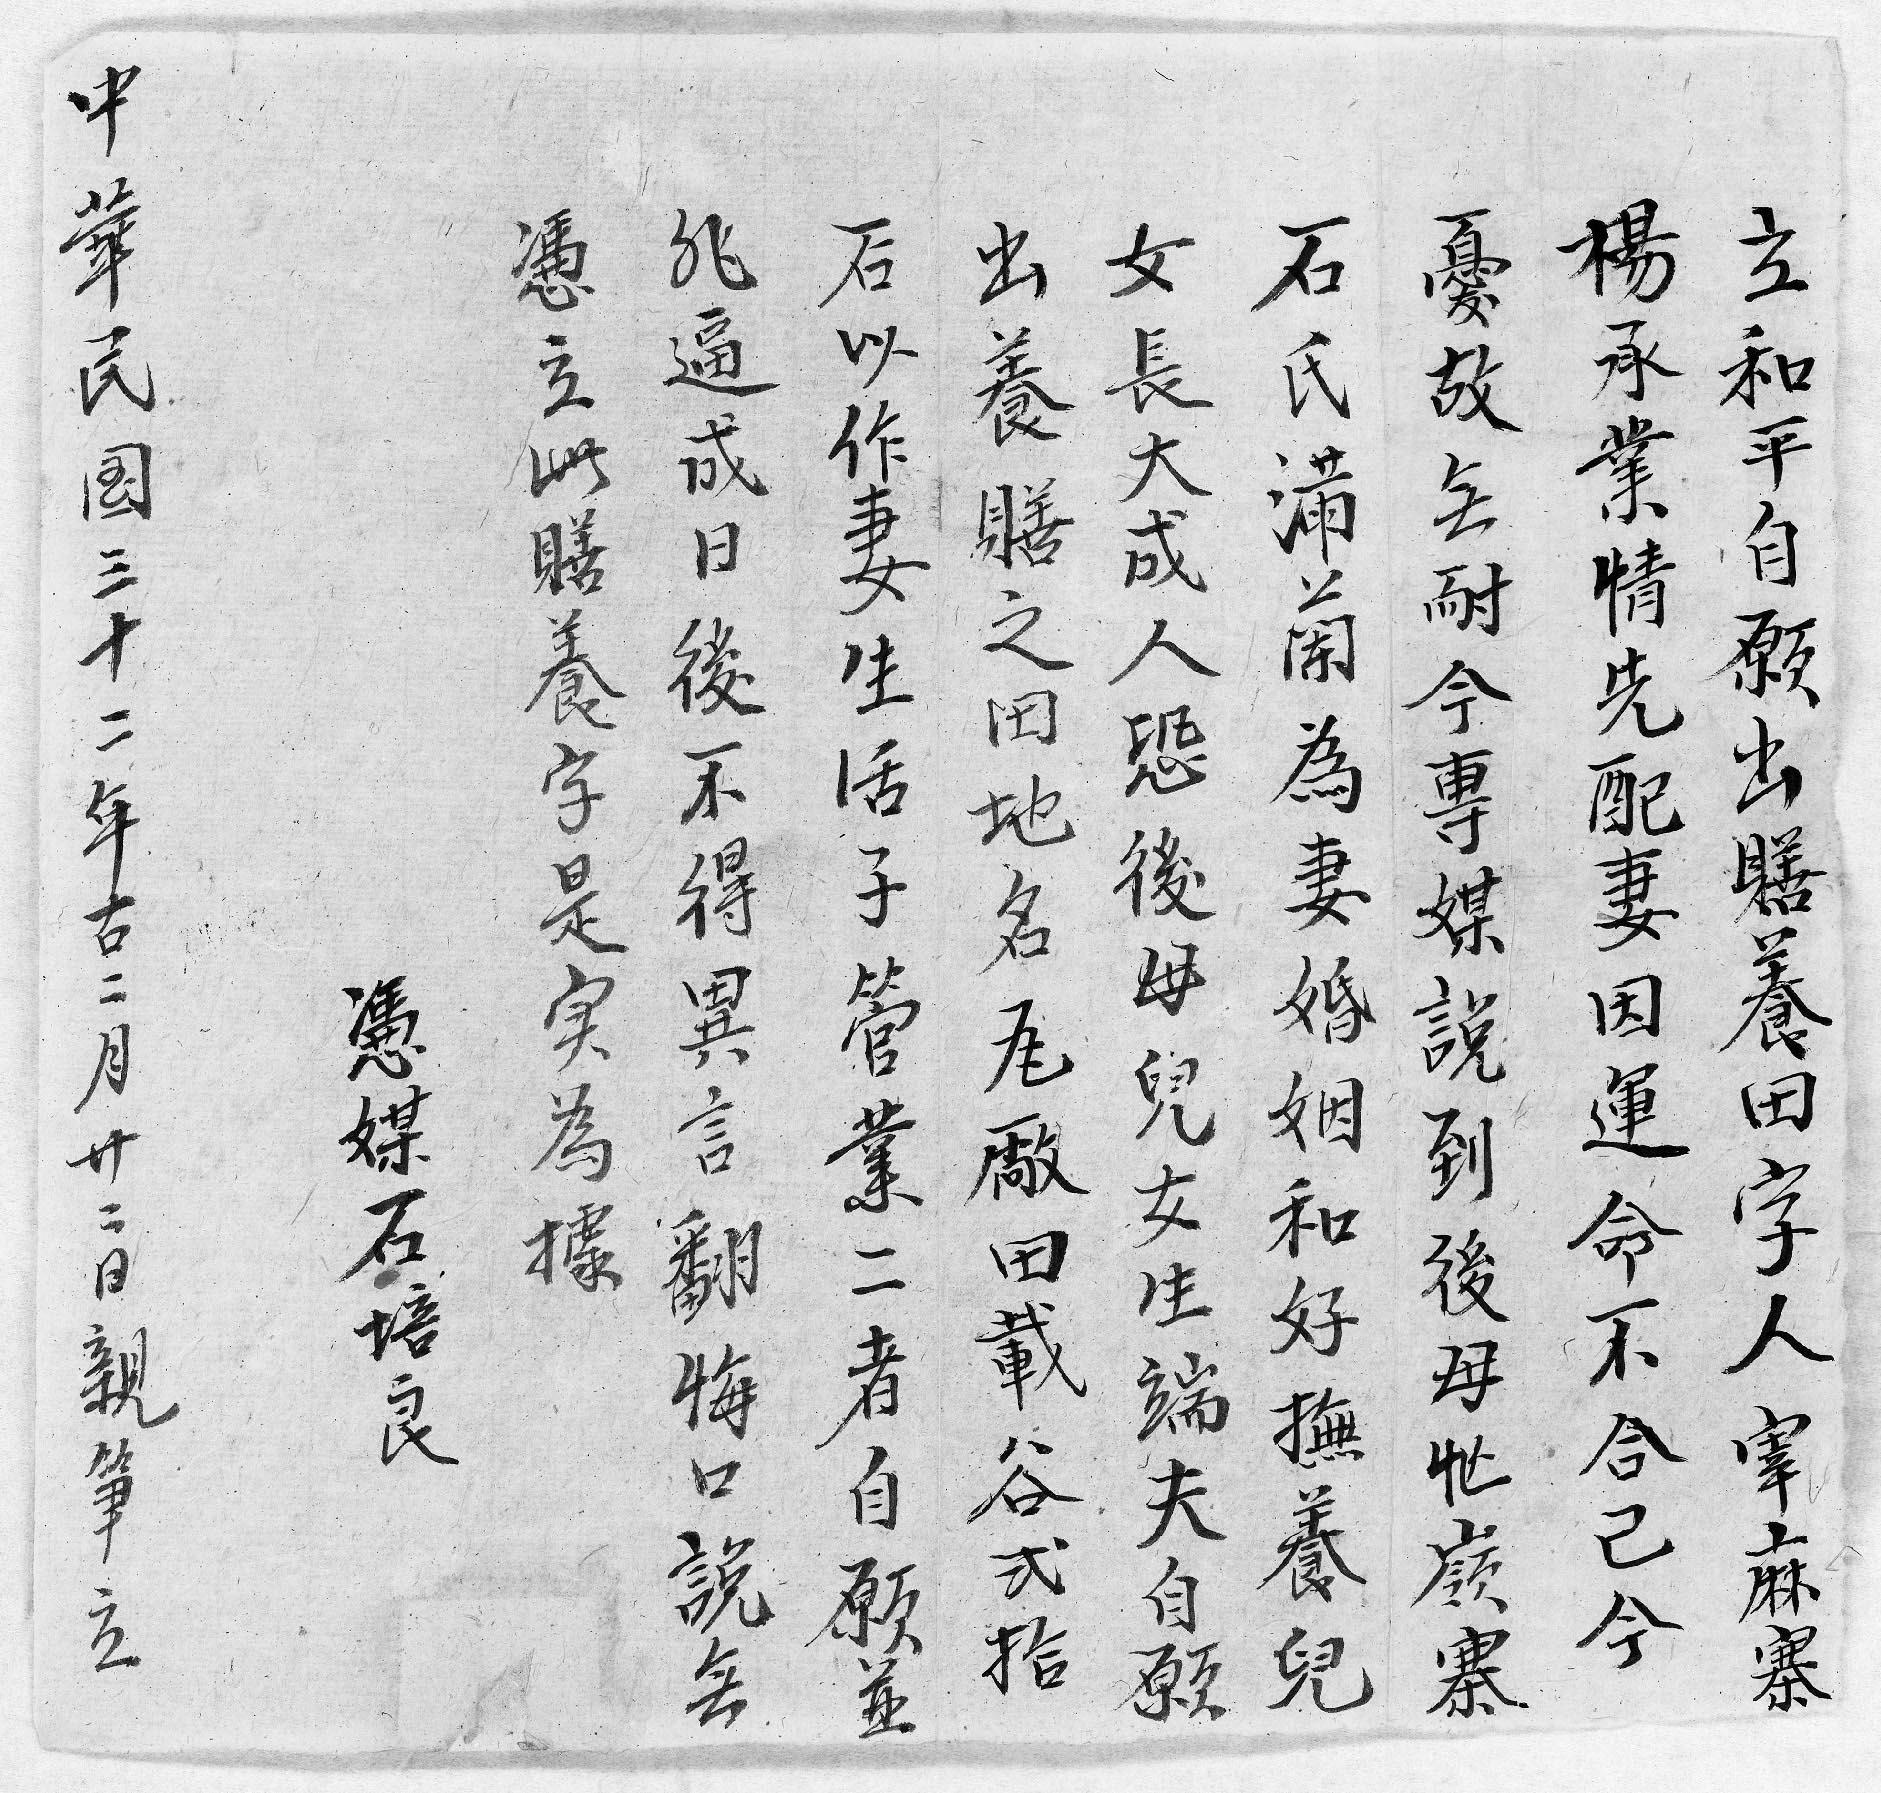 立和平自愿出賰養田字人宰麻寨
楊承業情先配妻因運命不合己今
憂故无耐今專媒説到後母牤嶺寨
石氏滿蘭為妻婚姻和好撫養兒
女長大成人恐後母兒女生端夫自愿
出養賰之田地名凥廠田載谷弍拾
石以作妻生活子管業二者自愿並
非逼成日後不得異言翻悔口説无
憑立此賰養字是实為據
憑媒石培良
中華民国三十二年古二月廿二日親筆立